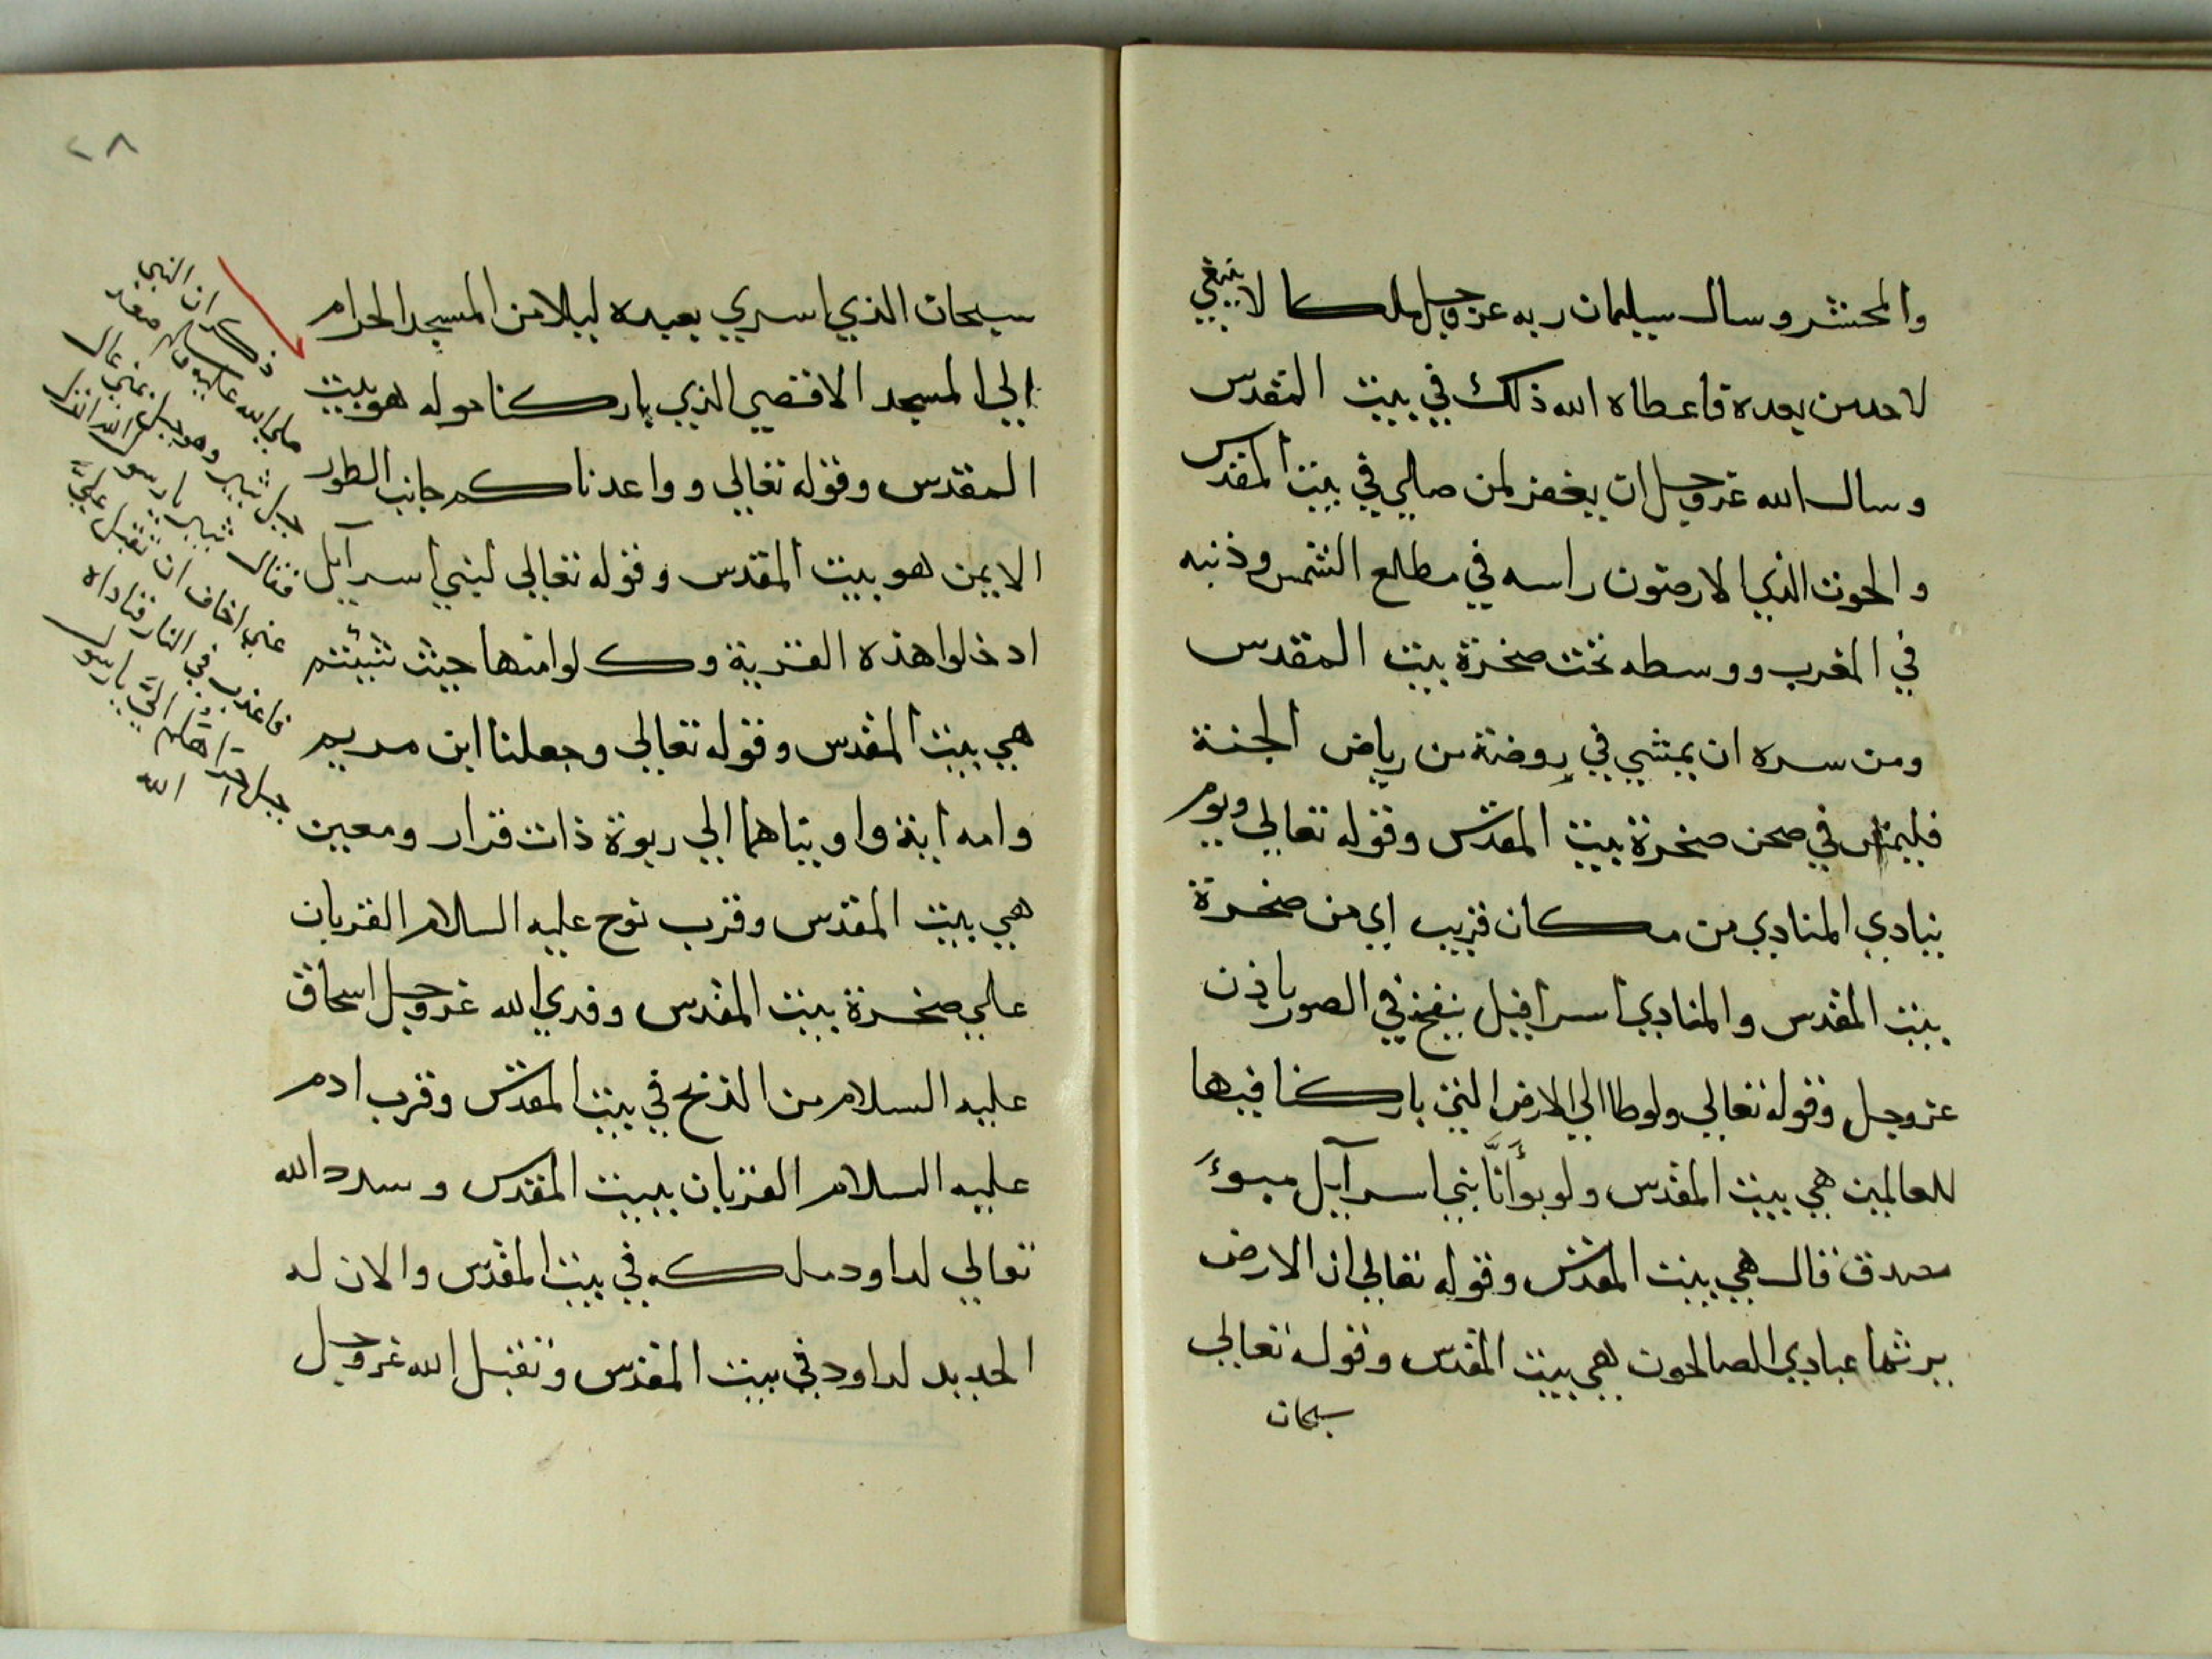 والمحشر وسال سليمان ربه عز وجل ملكا لا ينبغي
لاحد من بعده فاعطاه الله ذلك في بيت المقدس
وسال الله عز وجل ان يغفر لمن صلي في بيت المقدس
والحوت الذي الارضون راسه في مطلع الشمس وذنبه
في المغرب ووسطه تحت صخرة بيت المقدس
ومن سره ان يمشي في روضة من رياض الجنة
فليمش في صحن صخرة بيت المقدس وقوله تعالي ويوم
ينادي المنادي من مكان قريب اي من صخرة
بيت المقدس والمنادي اسرافيل ينفخ في الصور باذن
عز وجل وقوله تعالي ولوطا الي الارض التي باركنا فيها
للعالمين هي بيت المقدس ولو بوأنَّا بني اسرآيل مبوءَ
صدق قال هي بيت المقدس وقوله تعالي ان الارض
يرثها عبادي الصالحون هي بيت المقدس وقوله تعالي
سبحان
٢٨
سبحان الذي اسري بعبده ليلا من المسجد الحرام
الي المسجد الاقصي الذي باركنا حوله هو بيت
المقدس وقوله تعالي وواعدناكم جانب الطور
الايمن هو بيت المقدس وقوله تعالي لبني اسرآيل
ادخلوا هذه القرية وكلوا منها حيث شئتم
هي بيت المقدس وقوله تعالي وجعلنا ابن مريم
وامه اية واويناهما الي ربوة ذات قرار ومعين
هي بيت المقدس وقرب نوح عليه السلام القربان
علي صخرة بيت المقدس وفدي الله عز وجل اسحاق
عليه السلام من الذبح في بيت المقدس وقرب ادم
عليه السلام القربان ببيت المقدس وسدد الله
تعالي لداود ملكه في بيت المقدس والان له
الحديد لداود في بيت المقدس وتقبل الله عز وجل
ذكر ان النبي
صلي الله عليه وسلم صعد
جبل ثبير وهو جبل بمني عال
فقال ثبير يا رسول الله انزل
عني اخاف ان تقتل عليَّ
فاعذب في النار فناداه
جبل حرا اليَّ يا رسول
الله